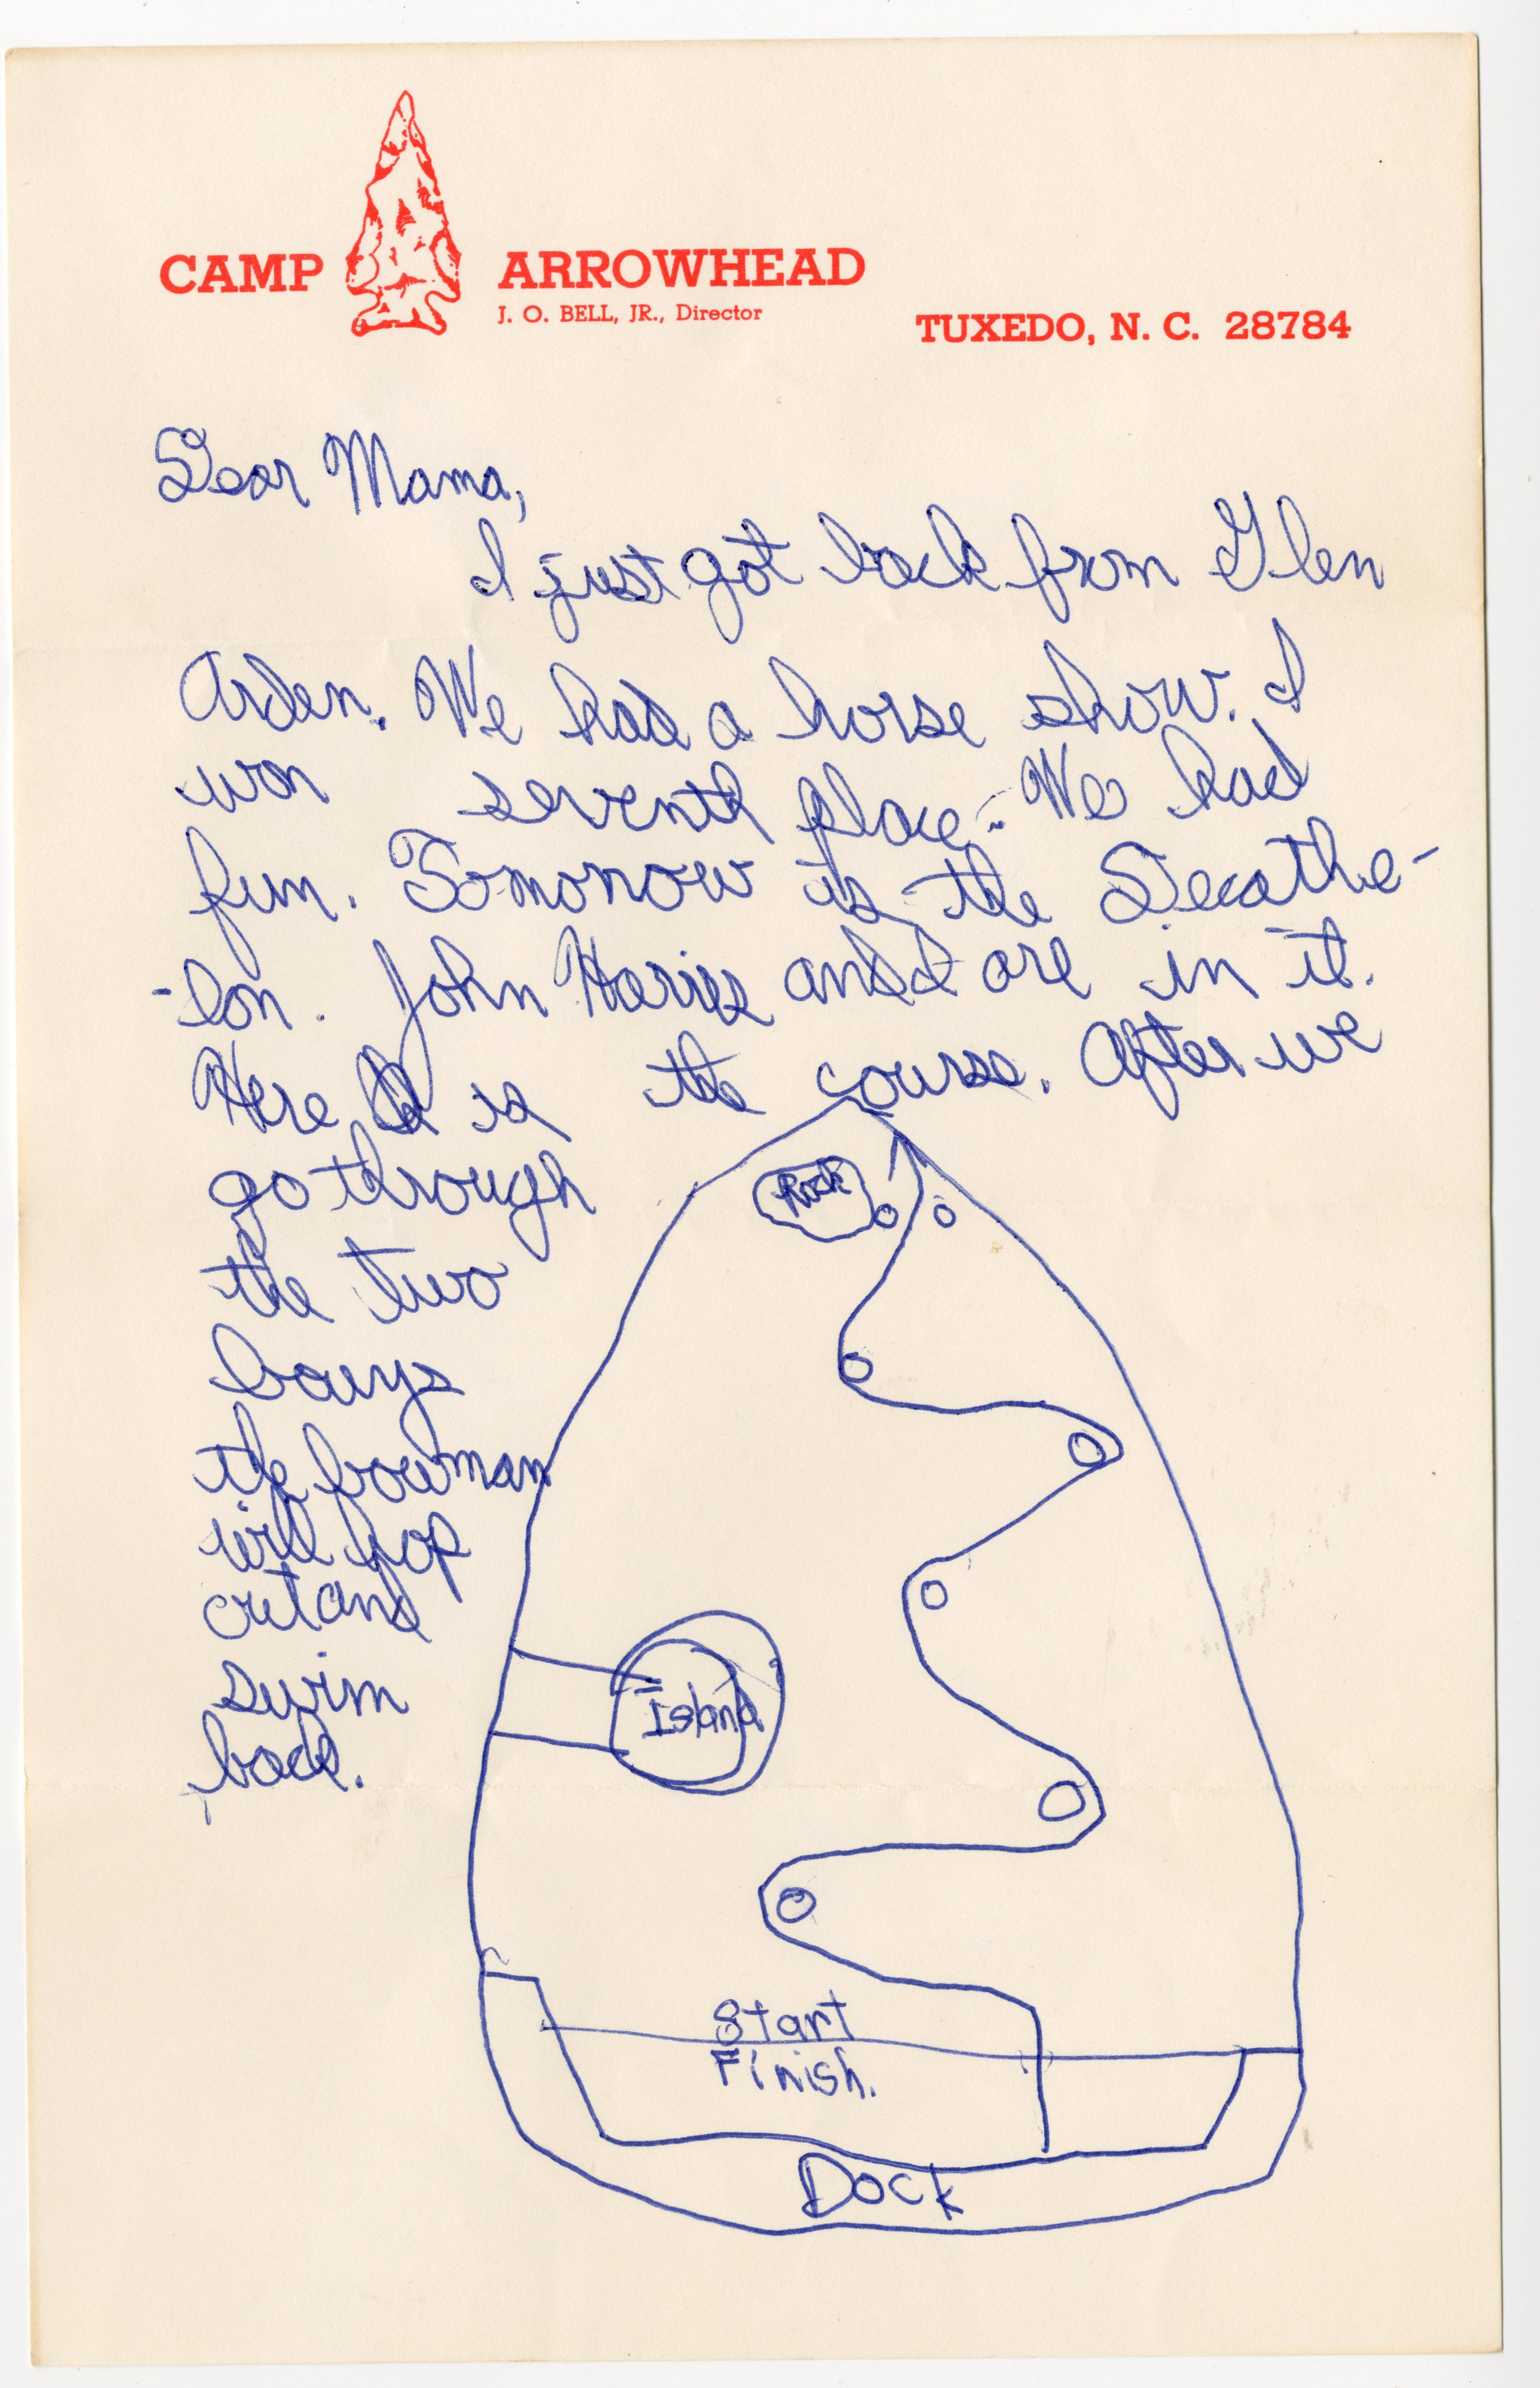 CAMP ARROWHEAD
J. O. BELL, JR., Director
TUXEDO, N. C. 28784
Dear Mama,
I just got back from Glen
Arden. We had a horse show. I
won seventh place. We had
fun. Tomorrow is the Decathe-
-lon. John Harris and I are in it.
Here is the course. After we
go through
the two
bouys
the bowman
will hop
out and
swim
back.
Rock
Island
Start
Finish.
Dock